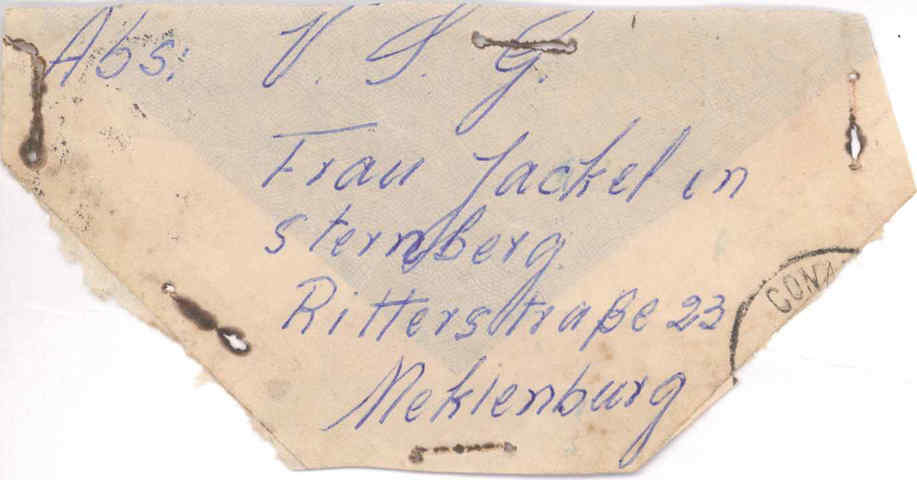 Abs: V. S. G.
Frau Jackel in
Sternberg
Ritterstraße 23
Meklenburg
CONA